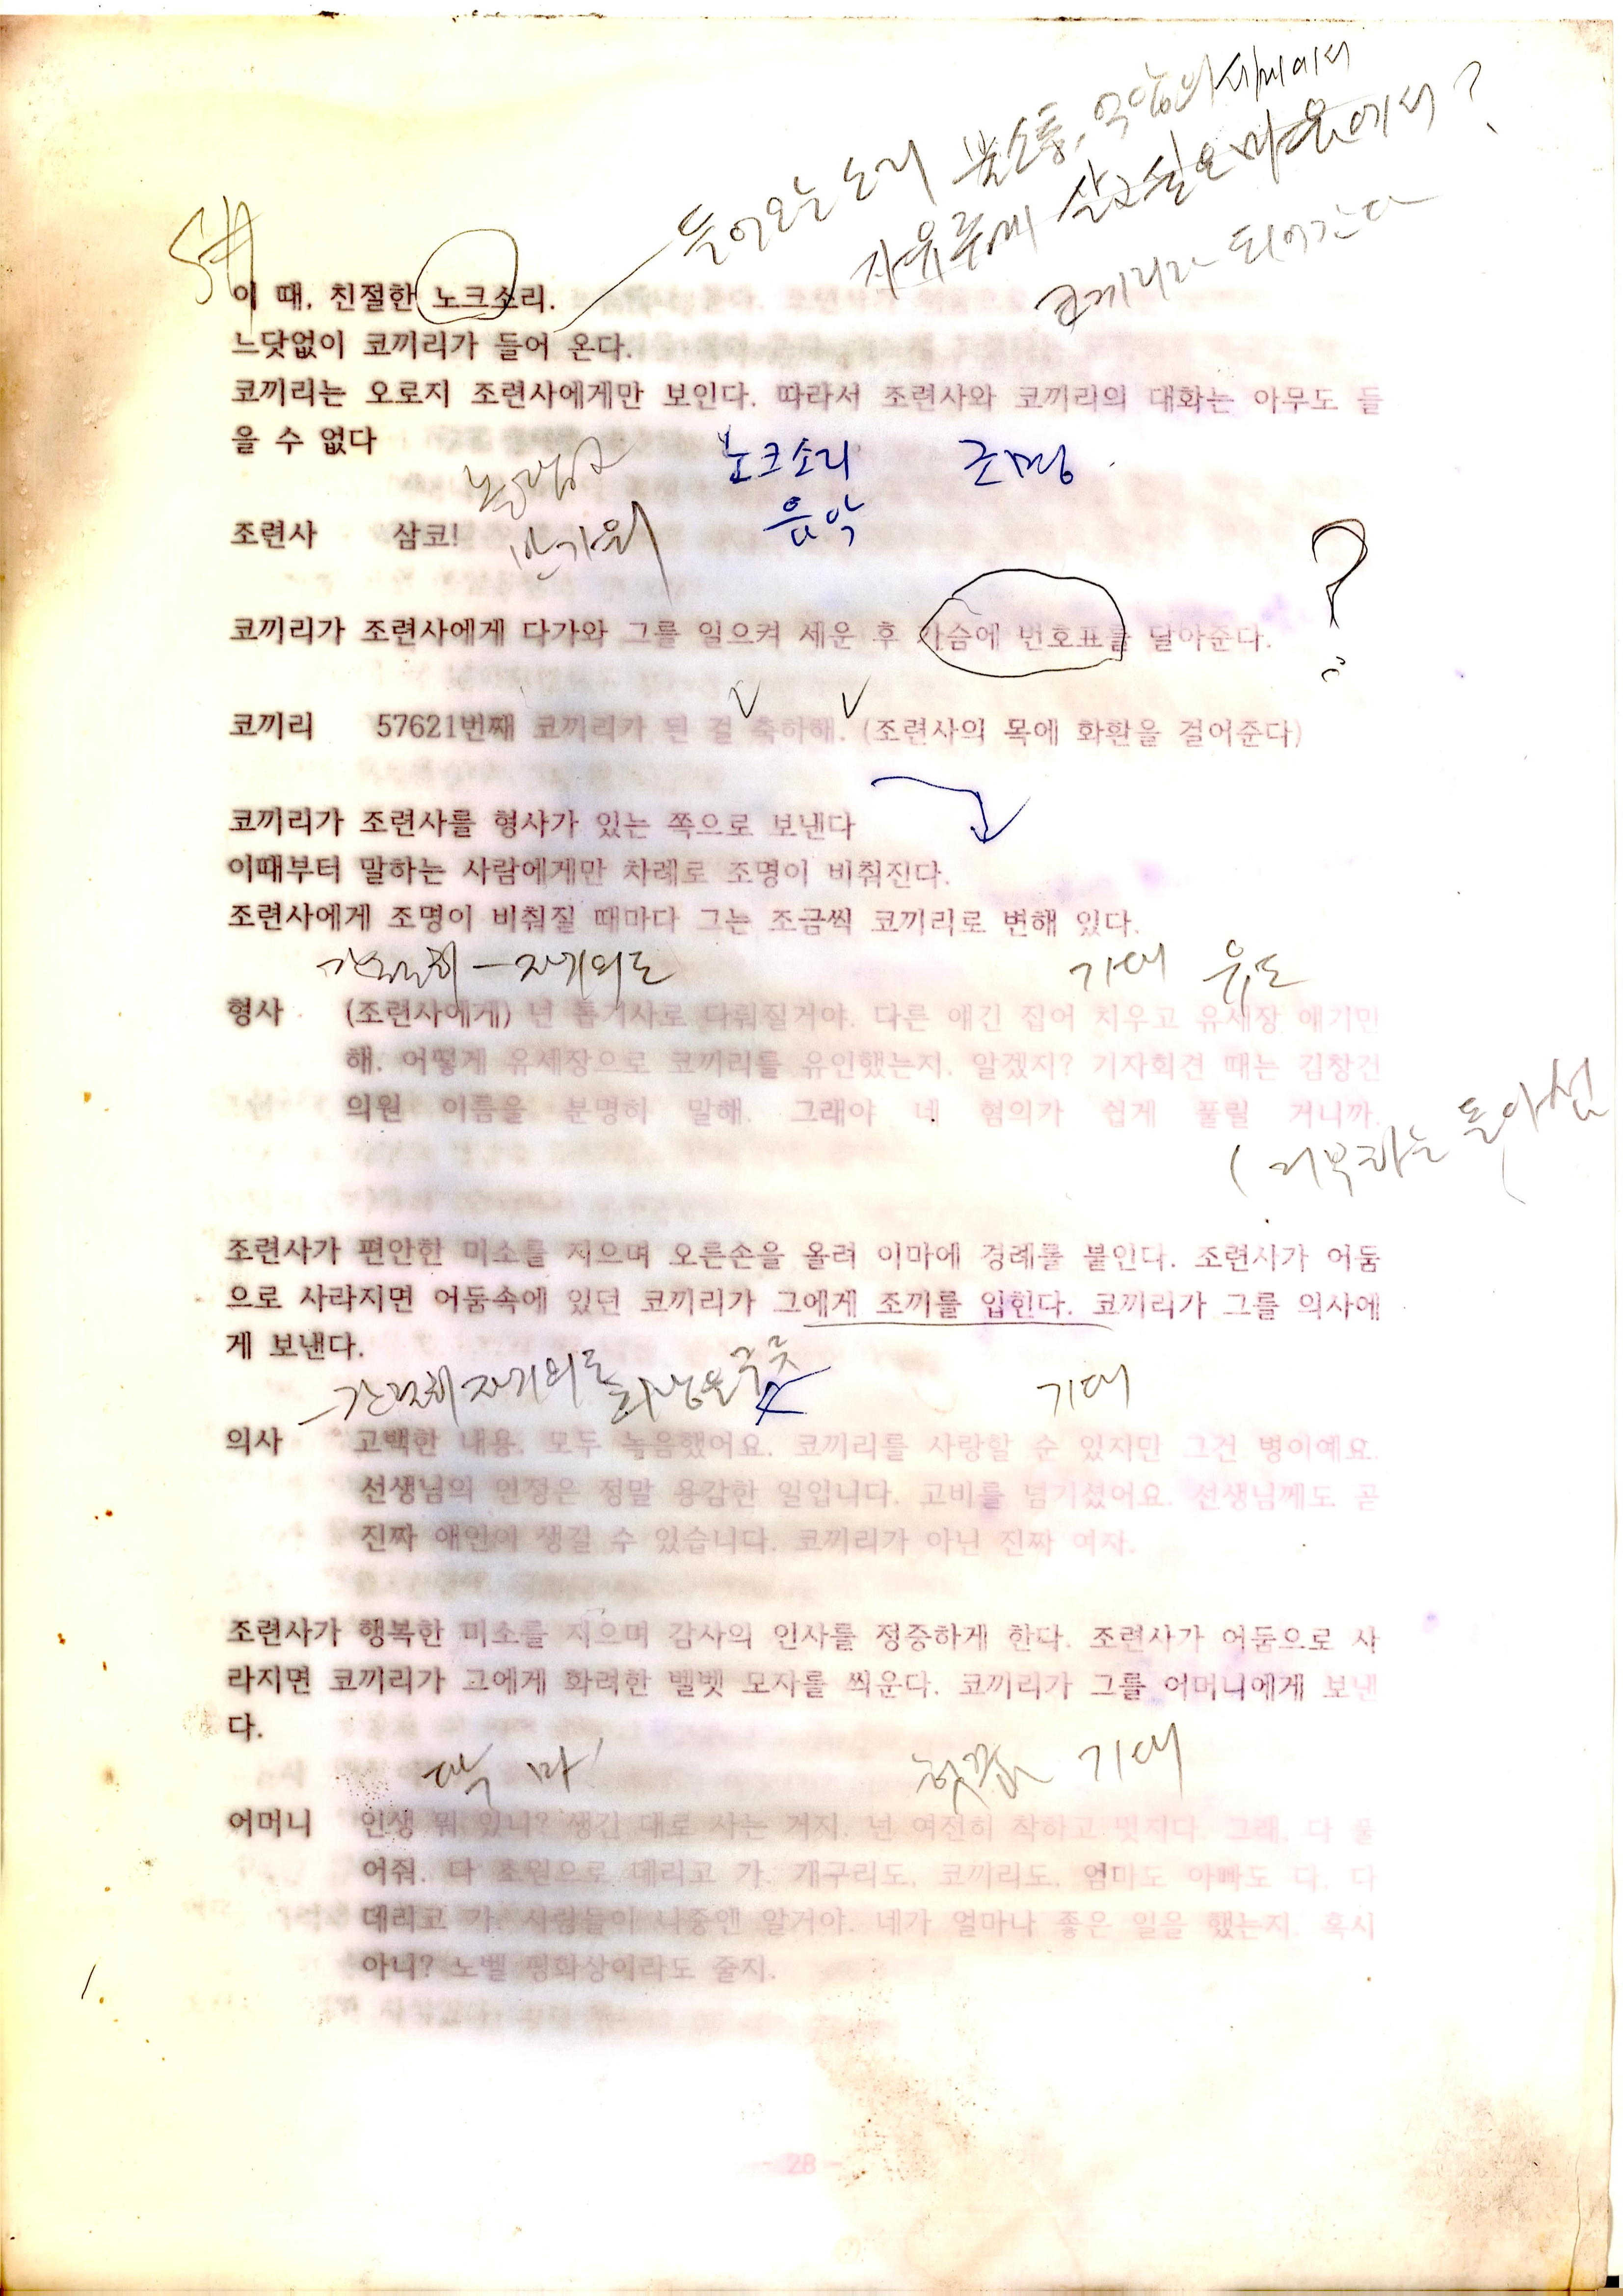 들어오는 소리 불소통, 억압의 세계에서
자유롭게 살고싶은 마음에서?
코끼리가 되어간다
이 때, 친절한 노크소리.
느닷없이 코끼리가 들어 온다.
코끼리는 오로지 조련사에게만 보인다. 따라서 조련사와 코끼리의 대화는 아무도 들
을 수 없다
노크소리 조명
음악
놀랍고
반가워
조련사 삼코!
?
코끼리가 조련사에게 다가와 그를 일으켜 세운 후 가슴에 번호표를 달아준다.
코끼리 57621번째 코끼리가 된 걸 축하해. (조련사의 목에 화환을 걸어준다)
코끼리가 조련사를 형사가 있는 쪽으로 보낸다
이때부터 말하는 사람에게만 차례로 조명이 비춰진다.
조련사에게 조명이 비춰질 때마다 그는 조금씩 코끼리로 변해 있다.
자기의도 기대 유도
형사 (조련사에게) 넌 톱기사로 다뤄질거야. 다른 얘긴 집어 치우고 유세장 얘기만
해. 어떻게 유세장으로 코끼리를 유인했는지. 알겠지? 기자회견 때는 김창건
의원 이름을 분명히 말해. 그래야 네 혐의가 쉽게 풀릴 거니까.
조련사가 편안한 미소를 지으며 오른손을 올려 이마에 경례를 붙인다. 조련사가 어둠
으로 사라지면 어둠속에 있던 코끼리가 그에게 조끼를 입힌다. 코끼리가 그를 의사에
게 보낸다.
자기의도 기대
의사 고백한 내용. 모두 녹음했어요. 코끼리를 사랑할 순 있지만 그건 병이예요.
선생님의 인정은 정말 용감한 일입니다. 고비를 넘기셨어요. 선생님께도 곧
진짜 애인이 생길 수 있습니다. 코끼리가 아닌 진짜 여자.
조련사가 행복한 미소를 지으며 감사의 인사를 정중하게 한다. 조련사가 어둠으로 사
라지면 코끼리가 그에게 화려한 벨벳 모자를 씌운다. 코끼리가 그를 어머니에게 보낸
다.
헛꿈 기대
어머니 인생 뭐 있니? 생긴 대로 사는 거지. 넌 여전히 착하고 멋지다. 그래. 다 풀
어줘. 다 초원으로 데리고 가. 개구리도, 코끼리도, 엄마도 아빠도 다. 다
데리고 가. 사람들이 나중엔 알거야. 네가 얼마나 좋은 일을 했는지. 혹시
아니? 노벨 평화상이라도 줄지.
- 28 -